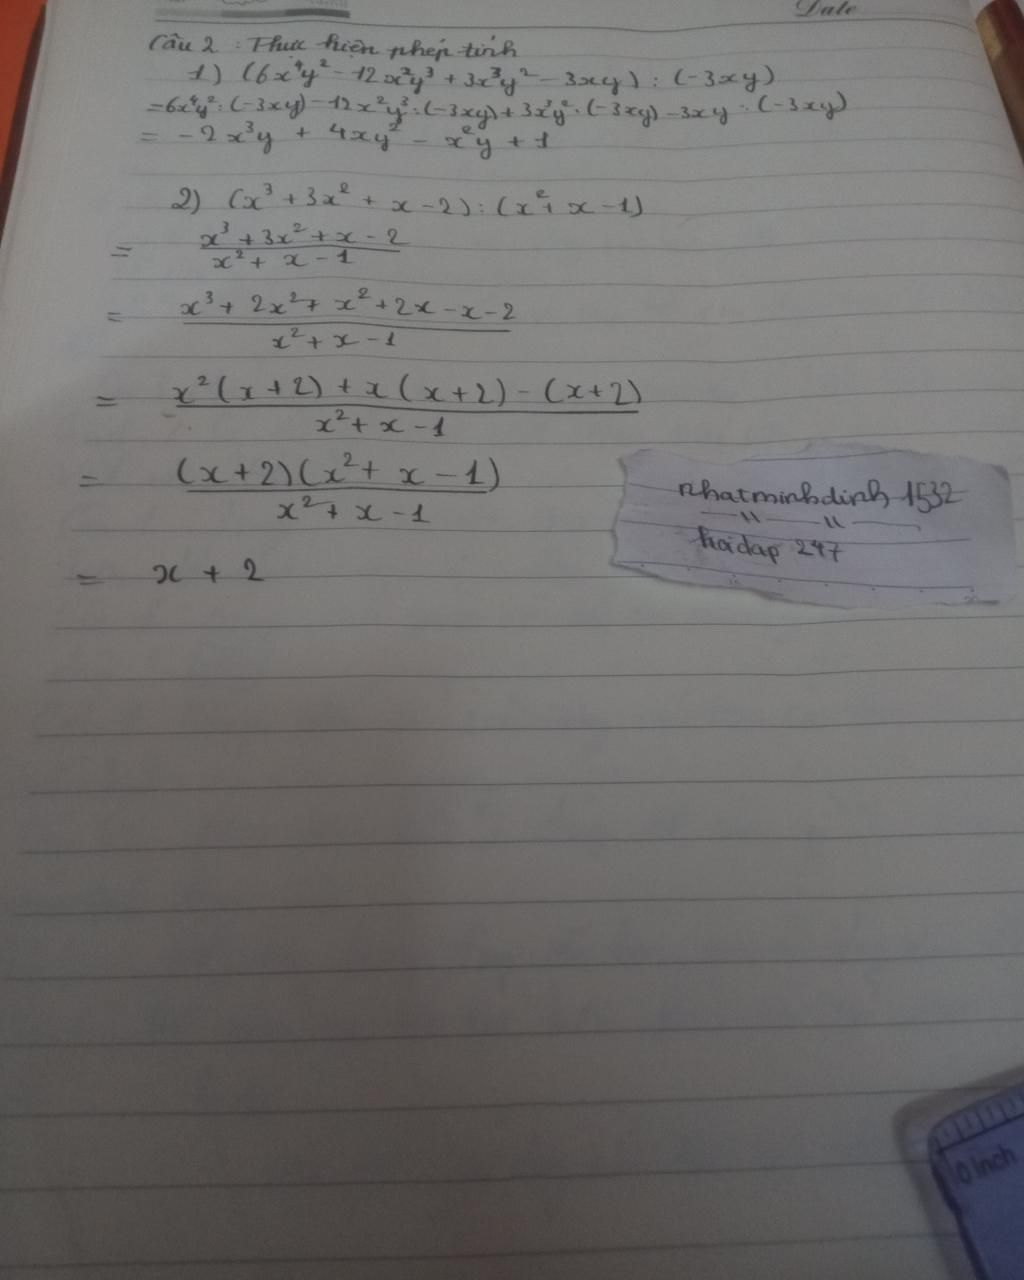 Date
Câu 2 : Thực hiện phép tính
1) (6x⁴y² - 12x²y³ + 3x³y² - 3xy) : (-3xy)
=6x⁴y² : (-3xy) - 12x²y³ : (-3xy) + 3x³y² : (-3xy) - 3xy : (-3xy)
= -2x³y + 4xy² - x²y + 1
2) (x³ + 3x² + x - 2) : (x² + x - 1)
= x³ + 3x² + x - 2
x² + x - 1
= x³ + 2x² + x² + 2x - x - 2
x² + x - 1
= x²(x + 2) + x(x + 2) - (x + 2)
x² + x - 1
= (x + 2)(x² + x - 1)
x² + x - 1
= x + 2
nhatminhdinh 1532
hoidap 247
0 Inch